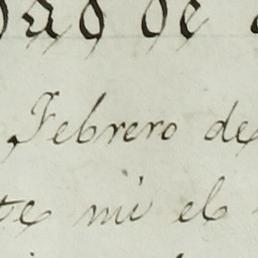 de
Febrero de
te mi el